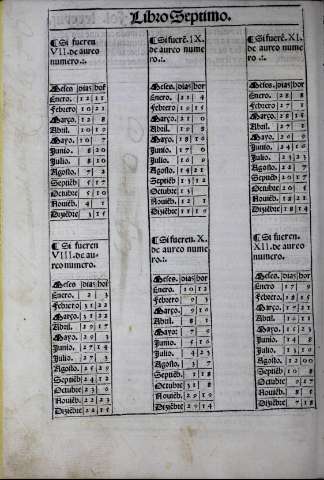 Libro Septimo.
¶ Si fueren
VII. de aureo
numero.:.
Meses. dias hor
Enero. 12 11
Febrero 10 21
Março. 12 8
Abril. 10 19
Mayo. 10 7
Junio. 8 20
Julio. 8 10
Agosto. 7 2
Septiẽb 5 17
Octub. 5 10
Nouiẽb. 4 1
Diziẽbre 3 15
¶ Si fueren
VIII. de au-
reo numero.
Meses. dias hor
Enero. 2 3
Febrero 31 22
Março. 31 22
Abril. 29 17
Mayo. 29 3
Junio. 27 14
Julio. 27 3
Agosto. 25 29
Septiẽb 24 12
Octub. 23 6
Nouiẽb. 22 23
Diziẽbre 22 15
¶ Si fuerẽ. IX.
de aureo nume
ro.:.
Meses. dias hor
Enero. 21 4
Febrero 19 15
Março. 21 0
Abril. 19 8
Mayo. 18 16
Junio. 17 6
Julio. 16 9
Agosto. 14 21
Septiẽb 13 12
Octub. 13
Nouiẽb. 12 1
Diziẽbre 11 19
¶ Si fueren. X.
de aureo nume
ro.:.
Meses. dias hor
Enero. 10
Febrero 9 3
Março. 9 16
Abril. 8 1
Mayo: 7 9
Junio. 5 16
Julio. 4 23
Agosto. 3 7
Septiẽb. 1 18
Octubre 31 8
Nouiẽb. 29 19
Diziẽbre 29 14
¶ Si fuerẽ. XI.
de aureo nume
ro.:.
Meses. dias hor
Enero. 28 8
Febrero 27 1
Março. 28 15
Abril. 27 1
Mayo. 26 9
Junio. 24 16
Julio. 23 23
Agosto. 22 7
Septiẽb 20 17
Octub. 20 5
Nouiẽb. 18 21
Diziẽbre 18 14
¶ Si fueren.
XII. de aureo
numero.
Meses. dias hor
Enero. 17 9
Febrero 18 15
Março. 17 21
Abril. 16 11
Mayo. 15 23
Junio. 14 8
Julio. 13 9
Agosto. 12 00
Septiẽb 10 8
Octub. 9 17
Nouiẽb. 8 5
Diziẽbre 7 18